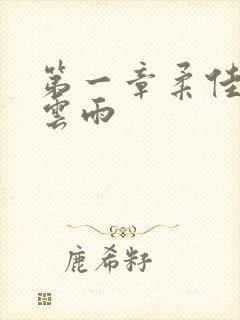 第一章柔佳
雲雨
鹿希籽